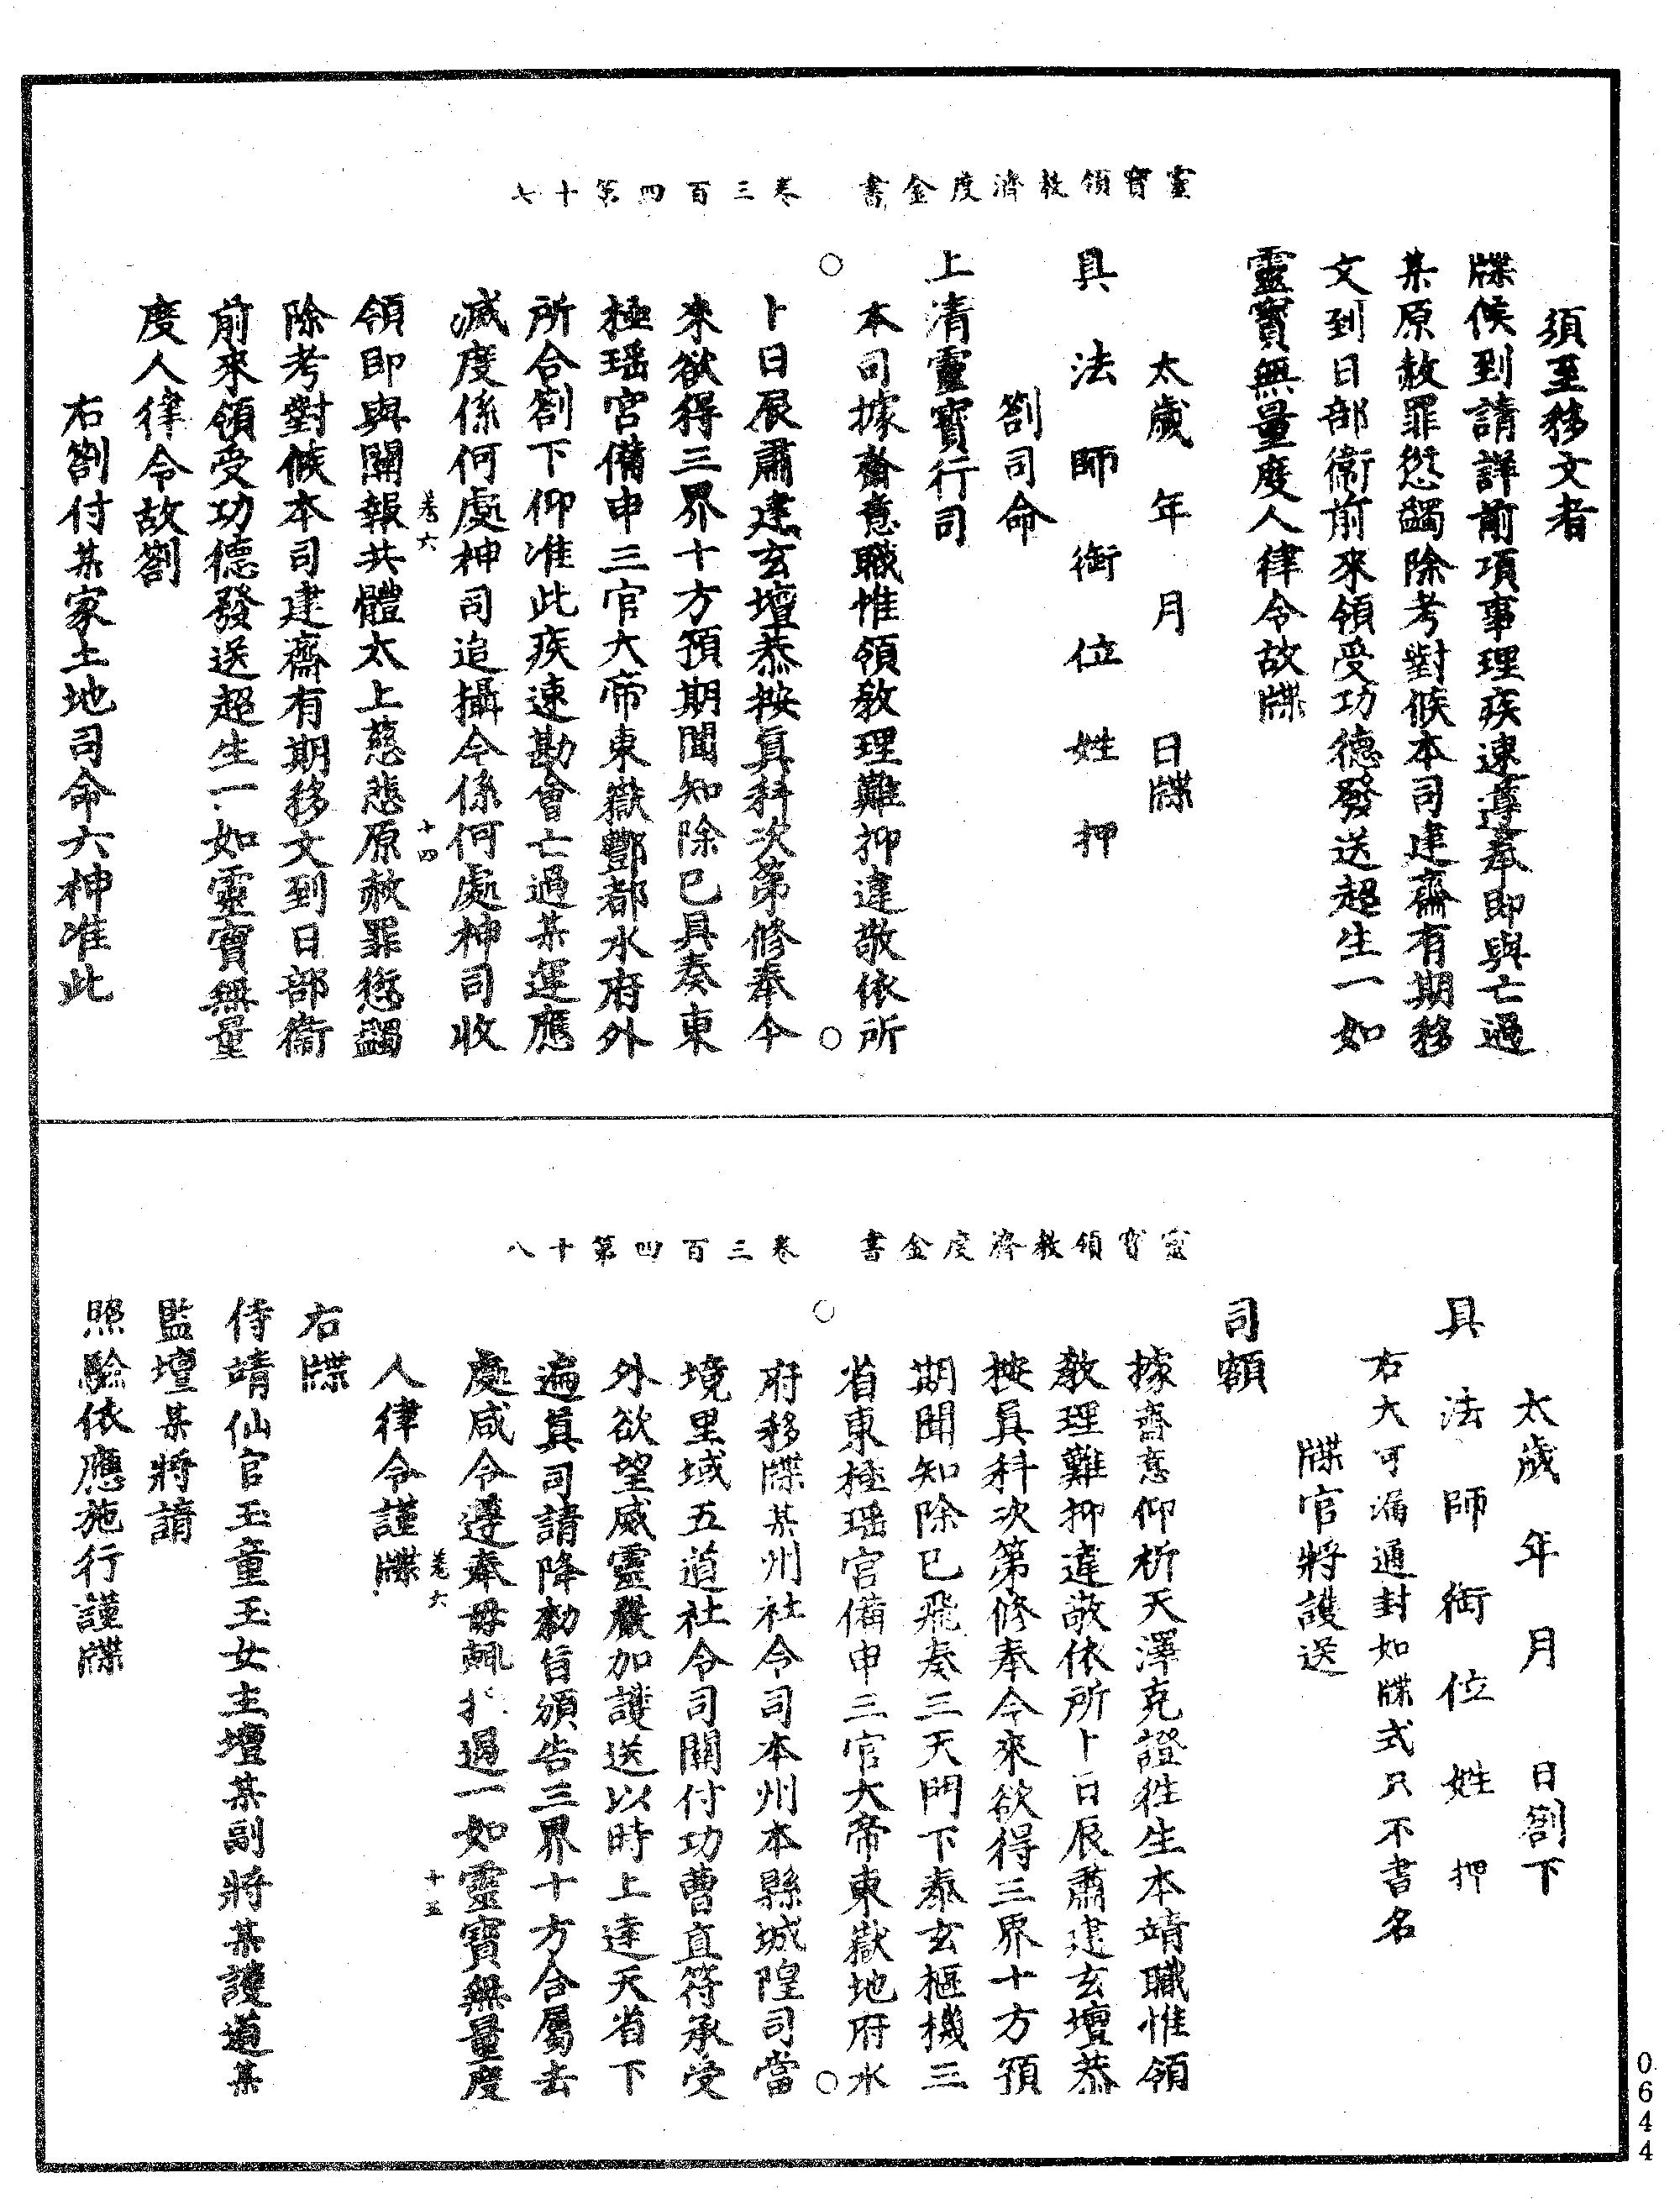 靈寶領教濟度金書　卷三百四第十七
須至移文者
牒候到請詳前項事理疾速遵奉即與亡過
某原赦罪愆蠲除考對候本司建齋有期移
文到日部衛前來領受功德發送超生一如
靈寶無量度人律令故牒
太歲　年　月　日牒
具　法　師　銜　位　姓　押
劄司命
上清靈寶行司
本司據齋意職惟領教理難抑違敬依所
卜日辰肅建玄壇恭按眞科次第修奉今
來欲得三界十方預期聞知除已具奏東
極瑤宮備申三官大帝東嶽酆都水府外
所合劄下仰准此疾速勘會亡過某運應
滅度係何處神司追攝今係何處神司收
卷六　十四
領即與關報共體太上慈悲原赦罪愆蠲
除考對候本司建齋有期移文到日部衛
前來領受功德發送超生一如靈寶無量
度人律令故劄
右劄付某家土地司命六神准此
靈寶領教濟度金書　卷三百四第十八
太歲　年　月　日劄下
具　法　師　銜　位　姓　押
右大可漏通封如牒式只不書名
牒官將護送
司額
據齋意仰析天澤克證徃生本靖職惟領
教理難抑違敬依所卜日辰肅建玄壇恭
按眞科次第修奉今來欲得三界十方預
期聞知除已飛奏三天門下泰玄樞機三
省東極瑤宮備申三官大帝東嶽地府水
府移牒某州社令司本州本縣城隍司當
境里域五道社令司關付功曹直符承受
外欲望威靈嚴加護送以時上達天省下
遍眞司請降勑旨頒告三界十方合屬去
處咸令遵奉毋輒過一如靈寶無量度
卷六　十五
人律令謹牒
右牒
侍靖仙官玉童玉女主壇某副將某護道某
監壇某將請
照驗依應施行謹牒
0644